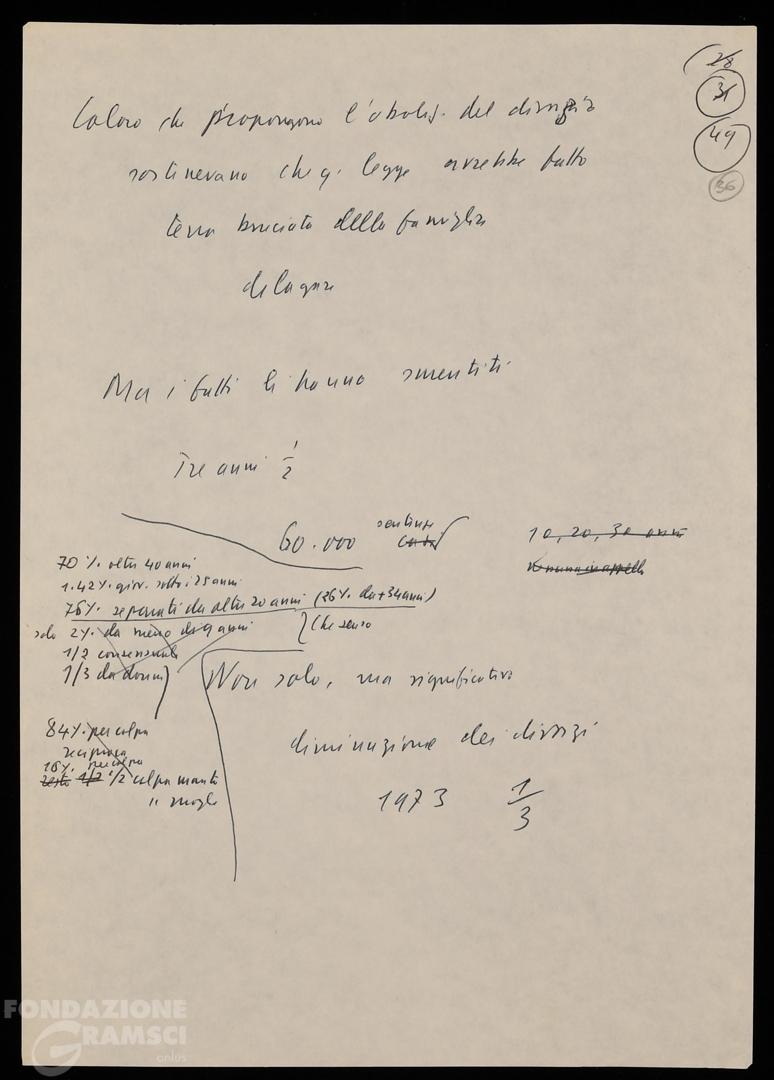 28
31
49
36
Coloro che propongono l'aboliz. del divorzio
sostenevano che q. legge avrebbe fatto
terra bruciata della famiglia
dilagare
Ma i fatti li hanno smentiti
Tre anni 1/2
60.000 sentenze
10, 20, 30 anni
70% oltre 40 anni
1.42% giov. sotto i 25 anni
76% separati da oltre 20 anni (36% da + 34 anni)
solo 2% da meno di 9 anni
1/2 consensuale
1/3 da donne
Che senso
Non solo, ma significativa
diminuzione dei divorzi
1973 1/3
84% per colpa
reciproca
16% per colpa
resto 1/2 1/2 colpa marito
" moglie
FONDAZIONE
GRAMSCI
onlus